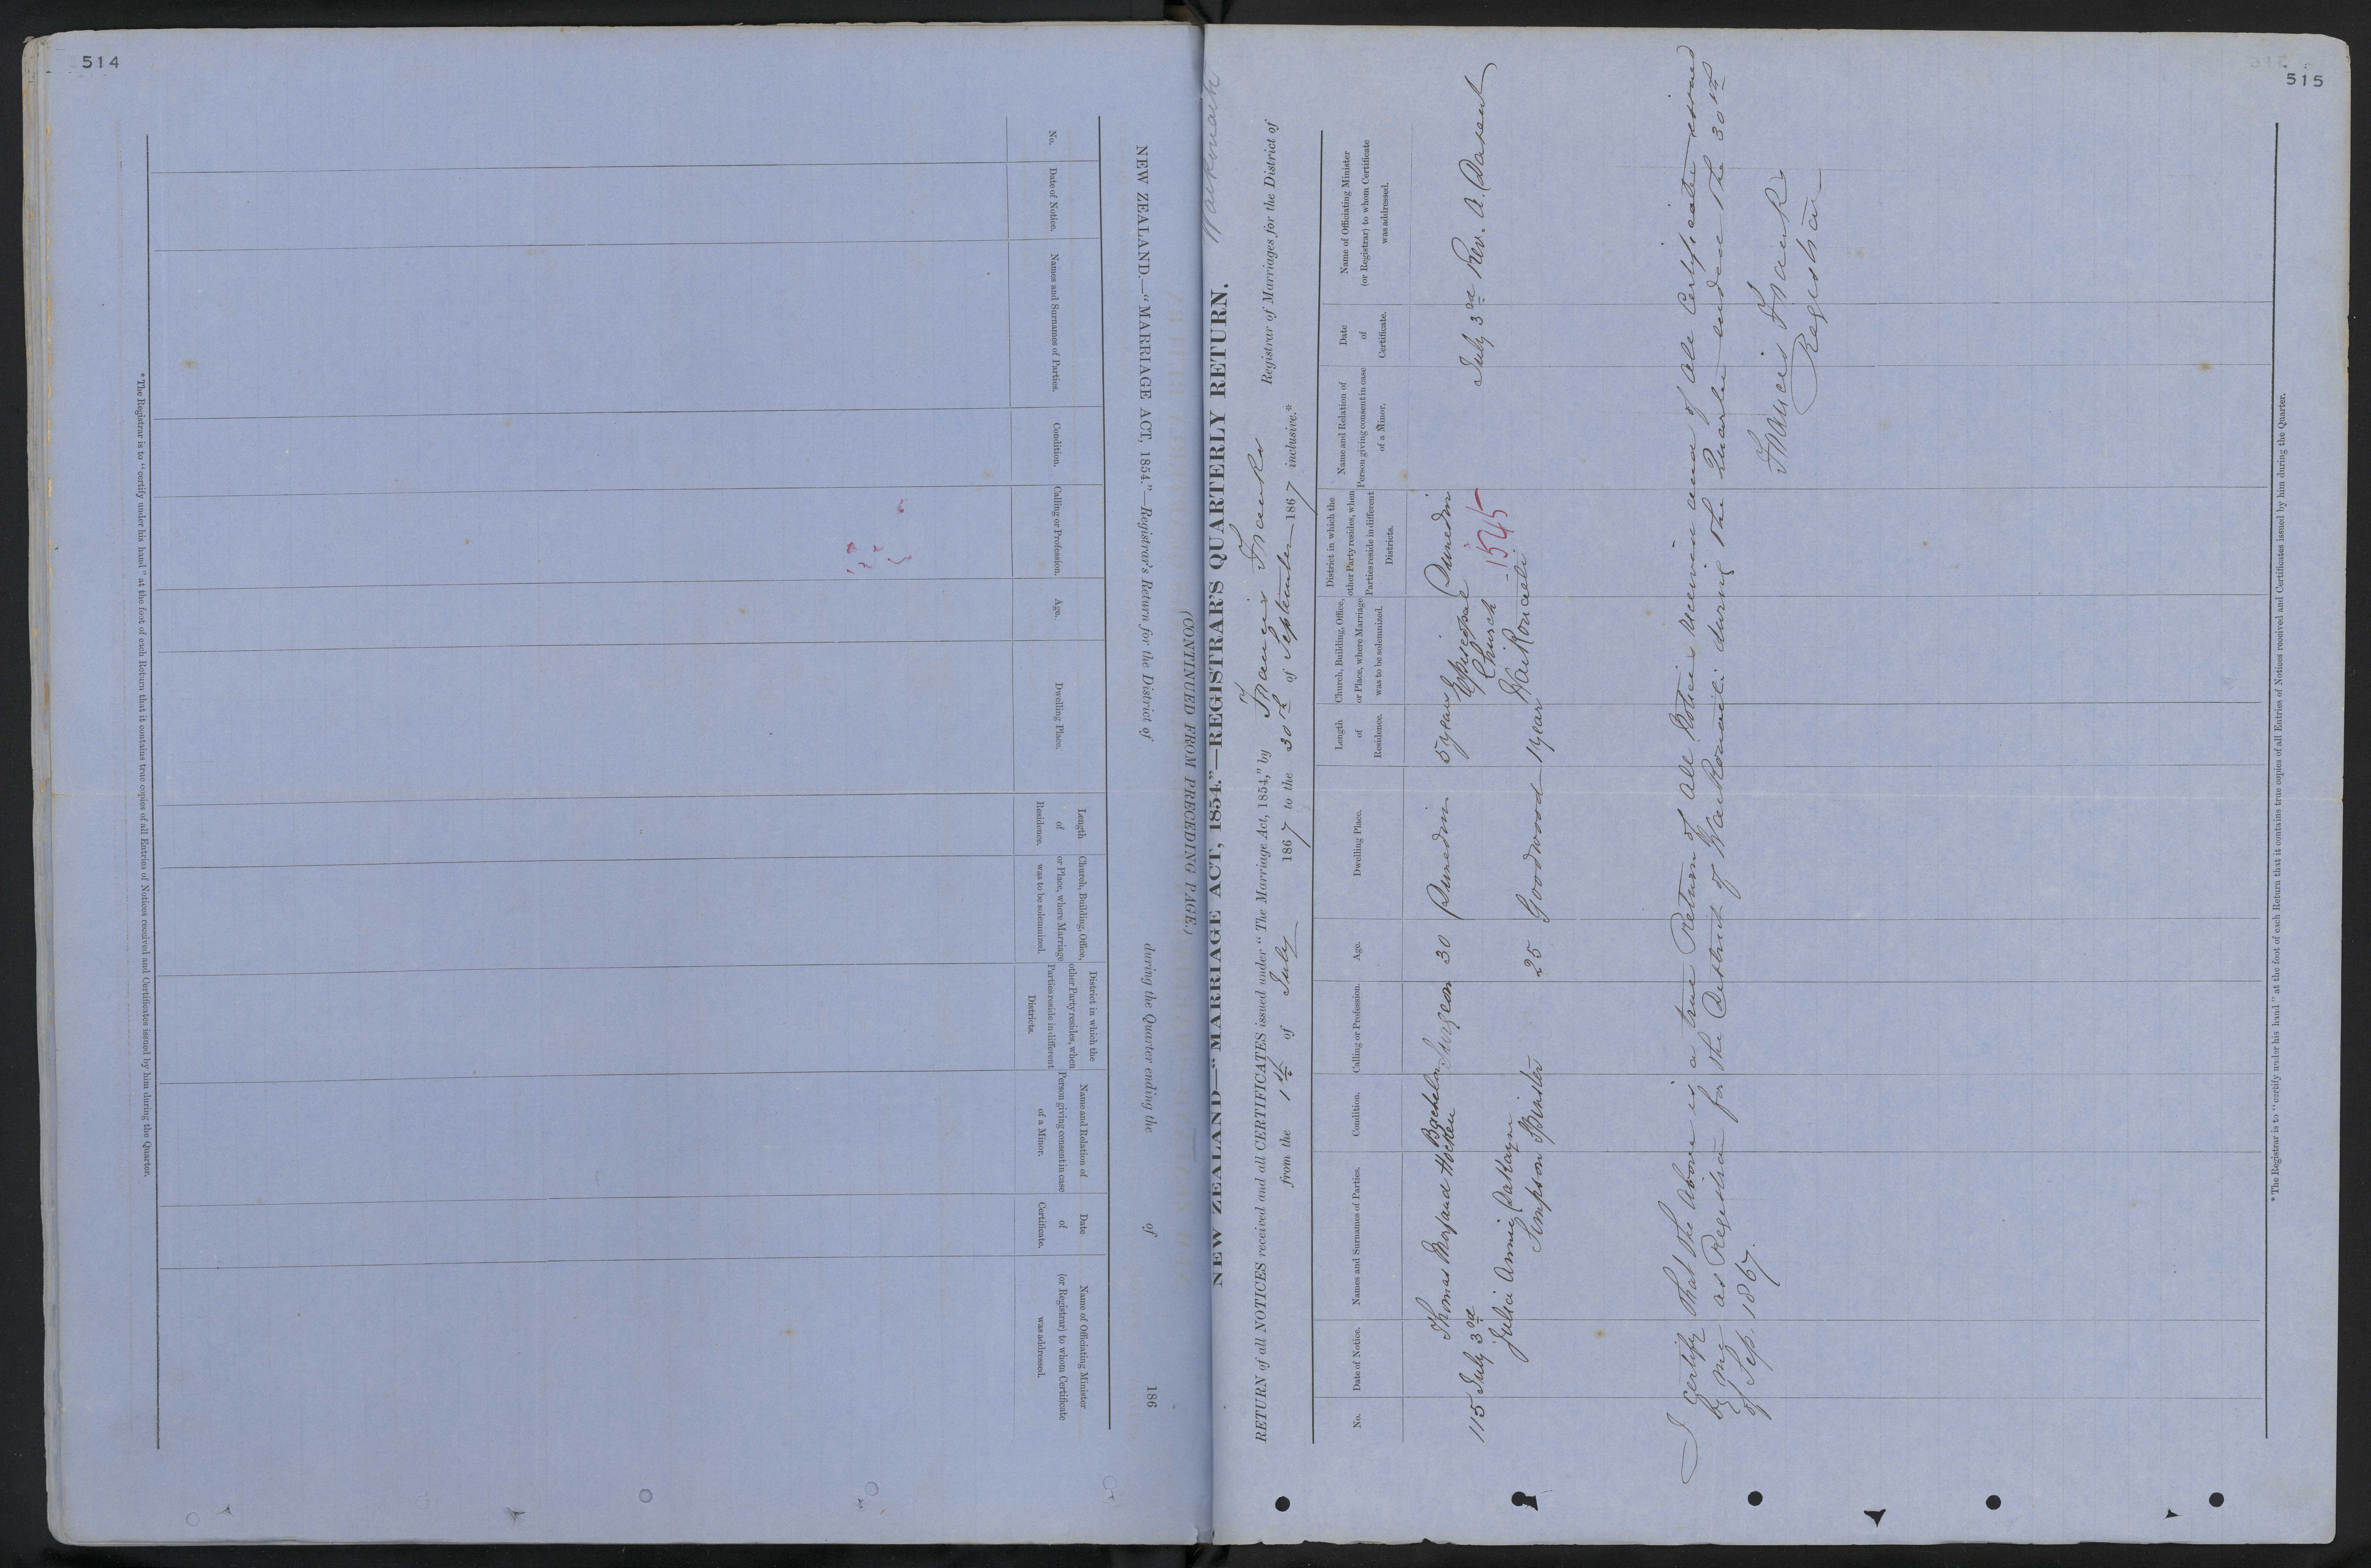 514
(CONTINUED FROM PRECEDING PAGE.)
NEW ZEALAND.—"MARRIAGE ACT, 1854."—Registrar's Return for the District of during the Quarter ending the of 186
No.
Date of Notice.
Names and Surnames of Parties.
Condition.
Calling or Profession.
Age.
Dwelling Place.
Length
of
Residence.
Church, Building, Office,
or Place, where Marriage
was to be solemnized.
District in which the
other Party resides, when
Parties reside in different
Districts.
Name and Relation of
Person giving consent in case
of a Minor.
Date
of
Certificate.
Name of Officiating Minister
(or Registrar) to whom Certificate
was addressed.
*The Registrar is to "certify under his hand" at the foot of each Return that it contains true copies of all Entries of Notices received and Certificates issued by him during the Quarter.
515
NEW ZEALAND—"MARRIAGE ACT, 1854."—REGISTRAR'S QUARTERLY RETURN.
RETURN of all NOTICES received and all CERTIFICATES issued under "The Marriage Act, 1854," by Francis Franks Registrar of Marriages for the District of
from the 1st of July 1867 to the 30th of September 1867 inclusive.*
No.
Date of Notice.
Names and Surnames of Parties.
Condition.
Calling or Profession.
Age.
Dwelling Place.
Length
of
Residence.
Church, Building, Office,
or Place, where Marriage
was to be solemnized.
District in which the
other Party resides, when
Parties reside in different
Districts.
Name and Relation of
Person giving consent in case
of a Minor.
Date
of
Certificate.
Name of Officiating Minister
(or Registrar) to whom Certificate
was addressed.
Thomas Morland Hocken Bachelor Surgeon 30 Dunedin 5 years Episcopal Dunedin
115 July 3rd Church 1545 July 3rd Rev. A. Dasent
Julia Annie Dakayne Waikouaiti
Simpson Spinster 25 Goodwood 1 year
I certify that the above is a true Return of all Notices received and of all Certificates issued
by me as Registrar for the District of Waikouaiti during the Quarter ended the 30th
of Sep. 1867.
Francis Franks
Registrar
*The Registrar is to "certify under his hand" at the foot of each Return that it contains true copies of all Entries of Notices received and Certificates issued by him during the Quarter.